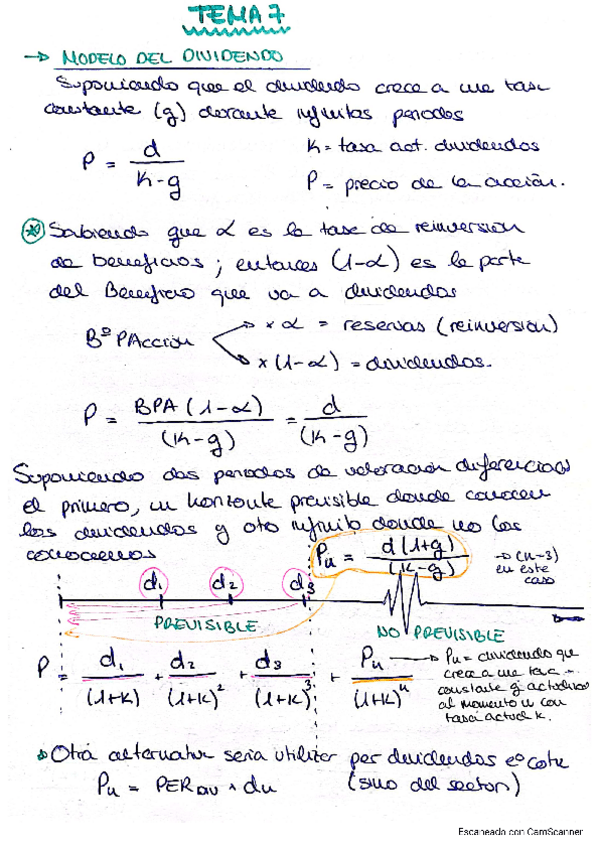 TEMA 7
→ MODELO DEL DIVIDENDO
Suponiendo que el dividendo crece a una tasa
constante (g) durante infinitos periodos
P = d / (K-g)
K = tasa act. dividendos
P = precio de la acción.
* Sabiendo que α es la tasa de reinversion
de beneficios; entonces (1-α) es la parte
del Beneficio que va a dividendos
Bº PAcción
x α = reservas (reinversión)
x (1-α) = dividendos.
P = BPA (1-α) / (K-g) = d / (K-g)
Suponiendo dos periodos de valoración diferenciados
el primero, un horizonte previsible donde conocen
los dividendos y oto infinito donde no los
conocemos
Pn = d(1+g) / (K-g)
→ (n-3)
en este
caso
d1 d2 d3
PREVISIBLE
NO PREVISIBLE
P = d1 / (1+K) + d2 / (1+K)² + d3 / (1+K)³ + Pn / (1+K)ⁿ
→ Pn = dividendo que
crece a una tasa
constante g
al momento n con
tasa actual K.
Otra alternativa seria utilizar per dividendos
Pn = PER x dn (sino del sector)
Escaneado con CamScanner